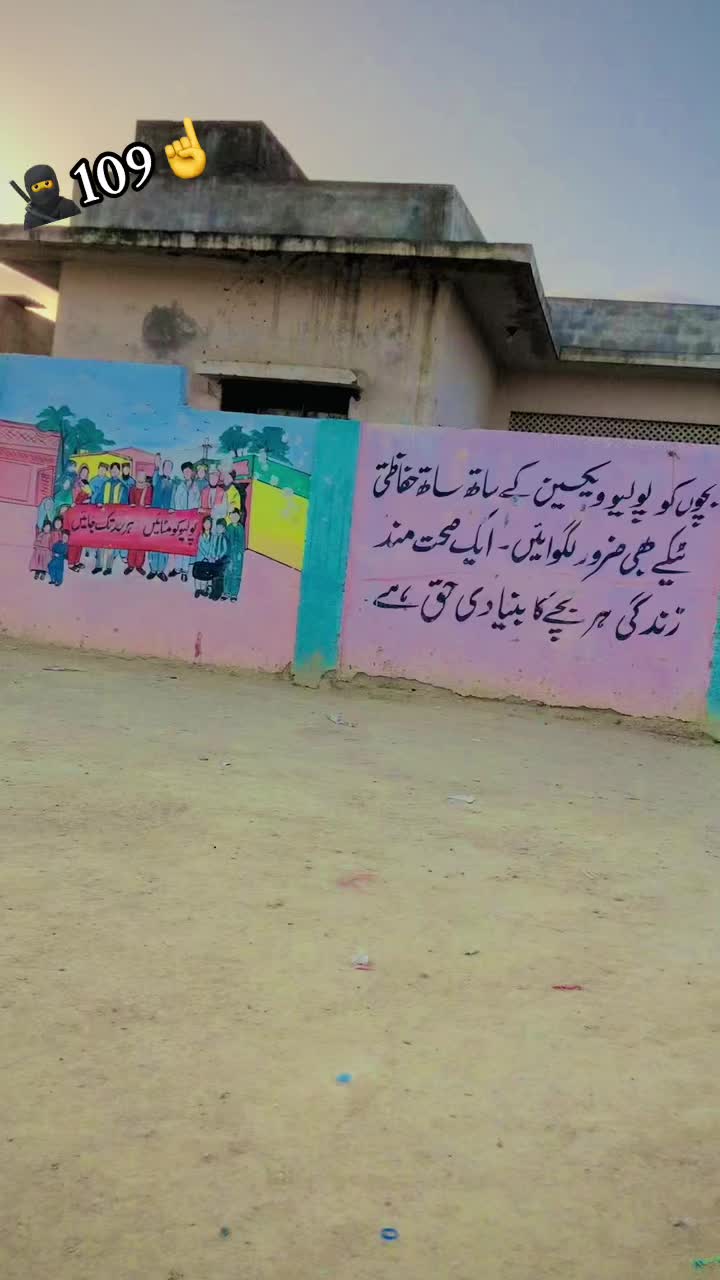 109
بچوں کو پولیو ویکسین کے ساتھ ساتھ حفاظتی
ٹیکے بھی ضرور لگوائیں۔ ایک صحت مند
زندگی ہر بچے کا بنیادی حق ہے
پولیو کو مٹائیں ہر حد تک جائیں